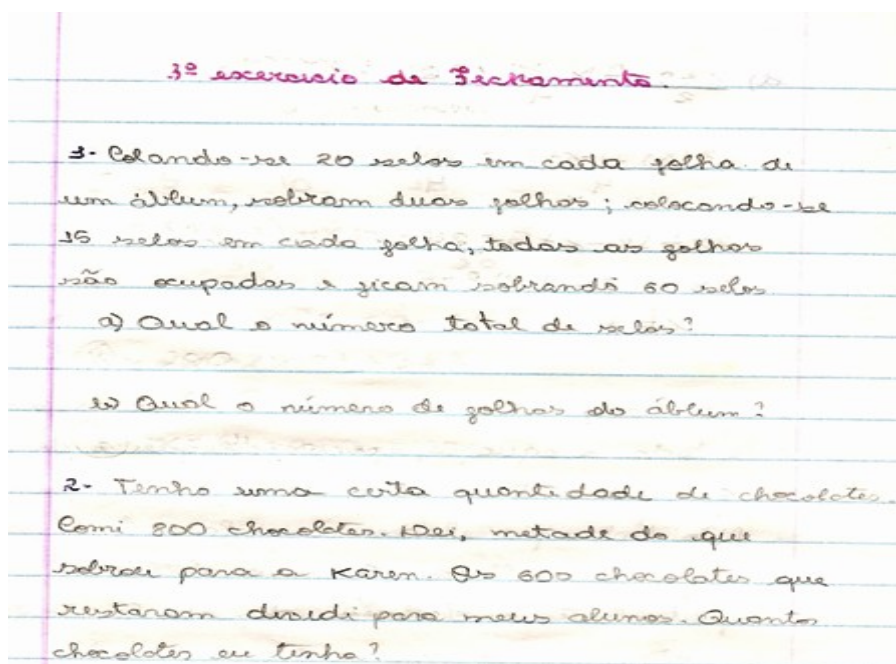 3º exercicio de Fechamento.
1- Colando-se 20 selos em cada folha de
um áblum, sobram duas folhas; colocando-se
15 selos em cada folha, todas as folhas
são ocupadas e ficam sobrando 60 selos
a) Qual o número total de selos?
b) Qual o número de folhas do áblum?
2- Tenho uma certa quantidade de chocolates.
Comi 800 chocolates. Dei, metade do que
sobrou para a Karen. Os 600 chocolates que
restaram dividi para meus alunos. Quantos
chocolates eu tinha?